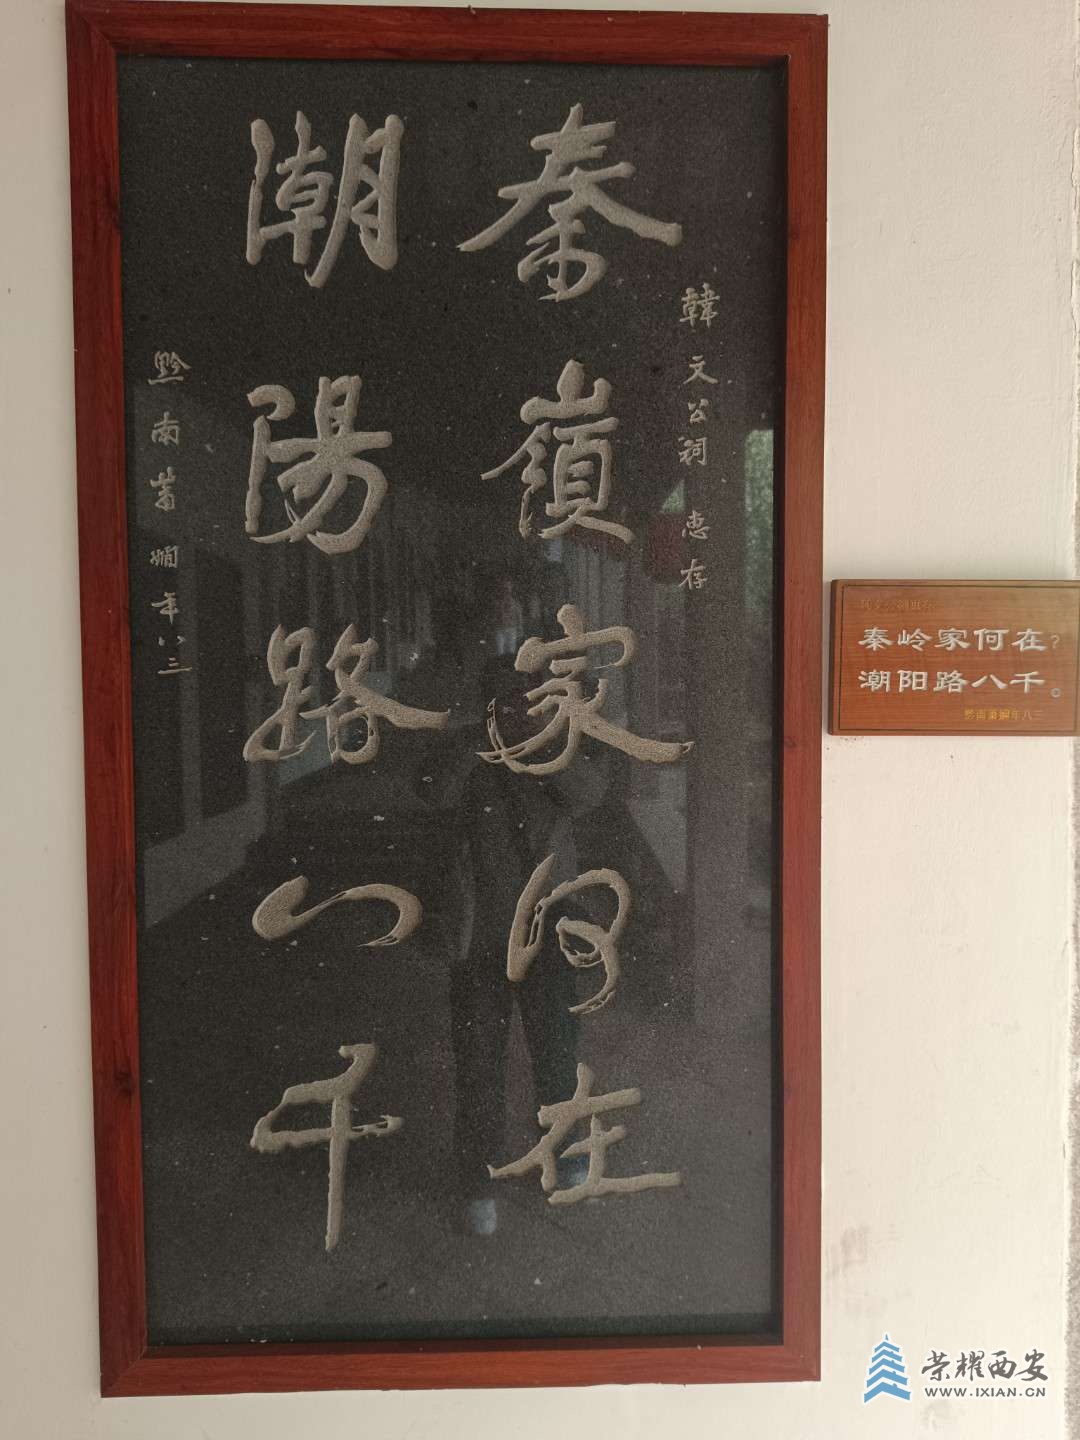 韓文公祠 惠存
秦嶺家何在
潮陽路八千
黔南萧嫻年八三
韩文公祠惠存
秦岭家何在?
潮阳路八千。
黔南萧娴年八三
荣耀西安
WWW.IXIAN.CN